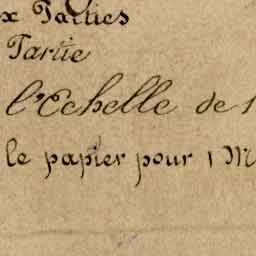 x Parties
Partie
l'Echelle de 1
le papier pour 1 M